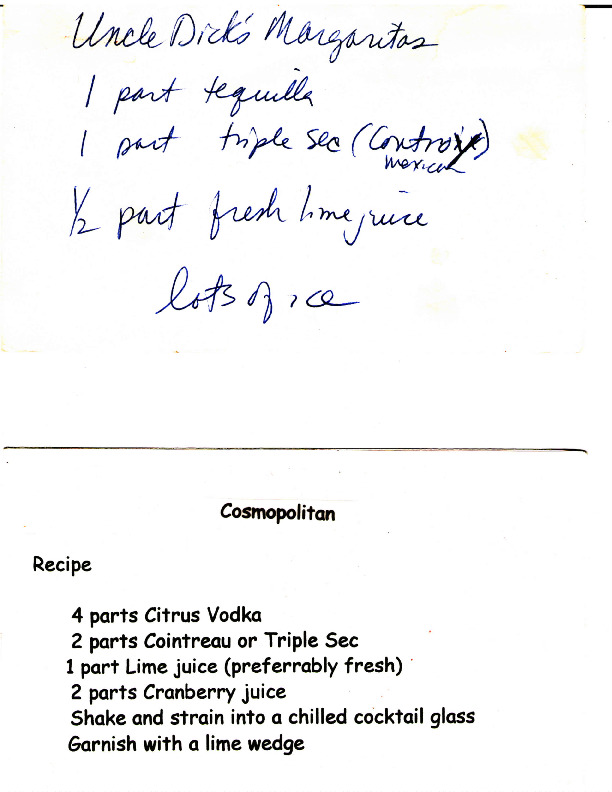 Uncle Dick's Margaritas
1 part tequilla
1 part triple sec (Controix)
mexican
1/2 part fresh lime juice
lots of ice
Cosmopolitan
Recipe
4 parts Citrus Vodka
2 parts Cointreau or Triple Sec
1 part Lime juice (preferrably fresh)
2 parts Cranberry juice
Shake and strain into a chilled cocktail glass
Garnish with a lime wedge